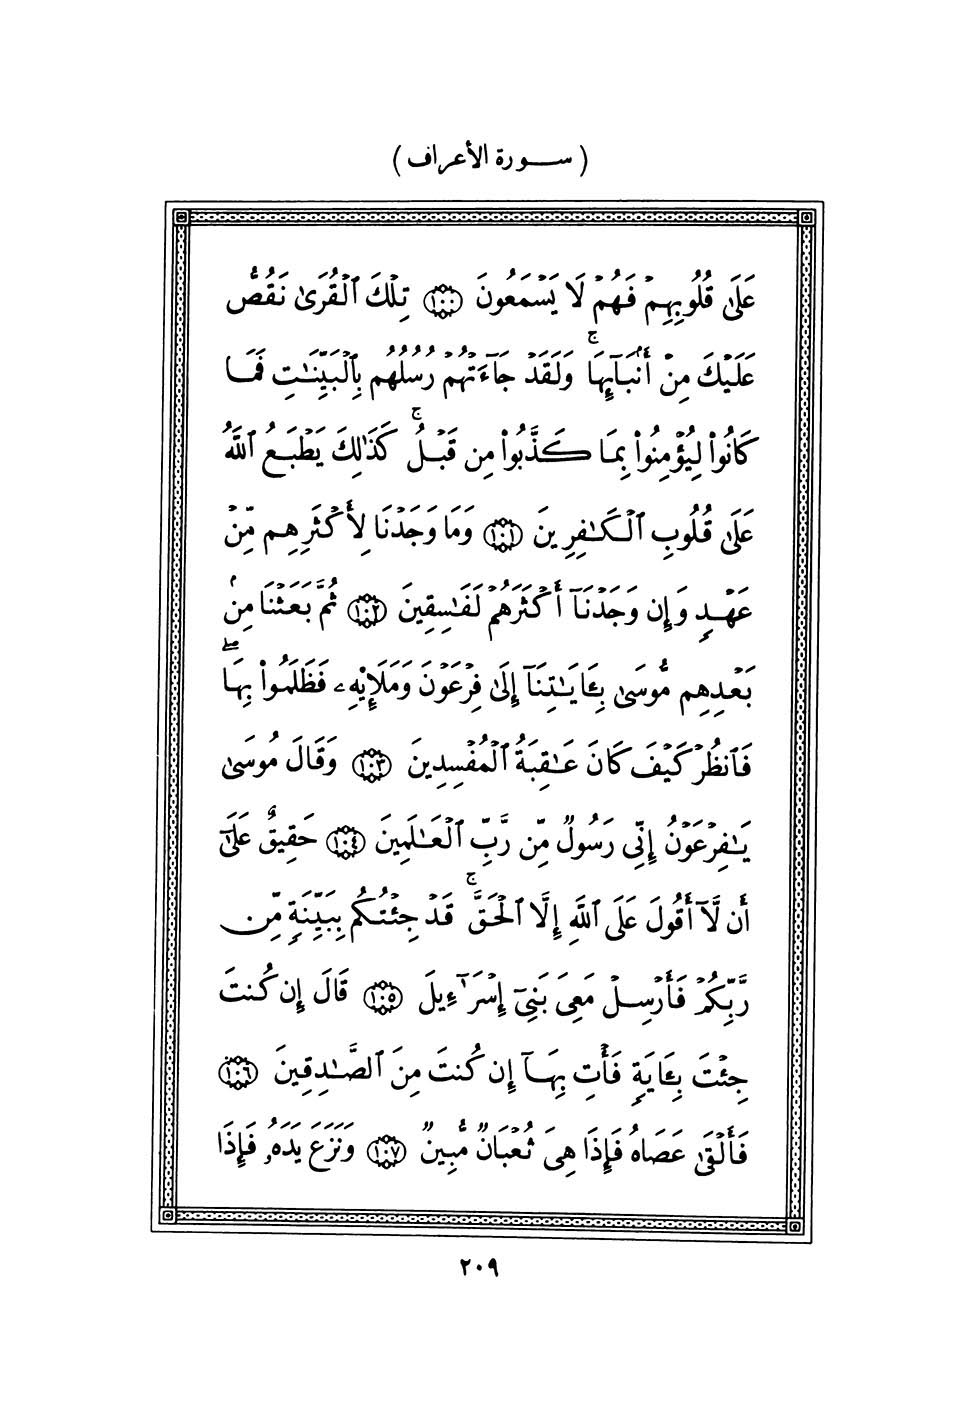 ( سورة الأعراف )
عَلَىٰ قُلُوبِهِمْ فَهُمْ لَا يَسْمَعُونَ ١٠٠ تِلْكَ ٱلْقُرَىٰ نَقُصُّ
عَلَيْكَ مِنْ أَنۢبَآئِهَا ۚ وَلَقَدْ جَآءَتْهُمْ رُسُلُهُم بِٱلْبَيِّنَـٰتِ فَمَا
كَانُوا۟ لِيُؤْمِنُوا۟ بِمَا كَذَّبُوا۟ مِن قَبْلُ ۚ كَذَٰلِكَ يَطْبَعُ ٱللَّهُ
عَلَىٰ قُلُوبِ ٱلْكَـٰفِرِينَ ١٠١ وَمَا وَجَدْنَا لِأَكْثَرِهِم مِّنْ
عَهْدٍ وَإِن وَجَدْنَآ أَكْثَرَهُمْ لَفَـٰسِقِينَ ١٠٢ ثُمَّ بَعَثْنَا مِنۢ
بَعْدِهِم مُّوسَىٰ بِـَٔايَـٰتِنَآ إِلَىٰ فِرْعَوْنَ وَمَلَإِي۟هِۦ فَظَلَمُوا۟ بِهَا ۖ
فَٱنظُرْ كَيْفَ كَانَ عَـٰقِبَةُ ٱلْمُفْسِدِينَ ١٠٣ وَقَالَ مُوسَىٰ
يَـٰفِرْعَوْنُ إِنِّى رَسُولٌ مِّن رَّبِّ ٱلْعَـٰلَمِينَ ١٠٤ حَقِيقٌ عَلَىٰٓ
أَن لَّآ أَقُولَ عَلَى ٱللَّهِ إِلَّا ٱلْحَقَّ ۚ قَدْ جِئْتُكُم بِبَيِّنَةٍ مِّن
رَّبِّكُمْ فَأَرْسِلْ مَعِىَ بَنِىٓ إِسْرَٰٓءِيلَ ١٠٥ قَالَ إِن كُنتَ
جِئْتَ بِـَٔايَةٍ فَأْتِ بِهَآ إِن كُنتَ مِنَ ٱلصَّـٰدِقِينَ ١٠٦
فَأَلْقَىٰ عَصَاهُ فَإِذَا هِىَ ثُعْبَانٌ مُّبِينٌ ١٠٧ وَنَزَعَ يَدَهُۥ فَإِذَا
٢٠٩